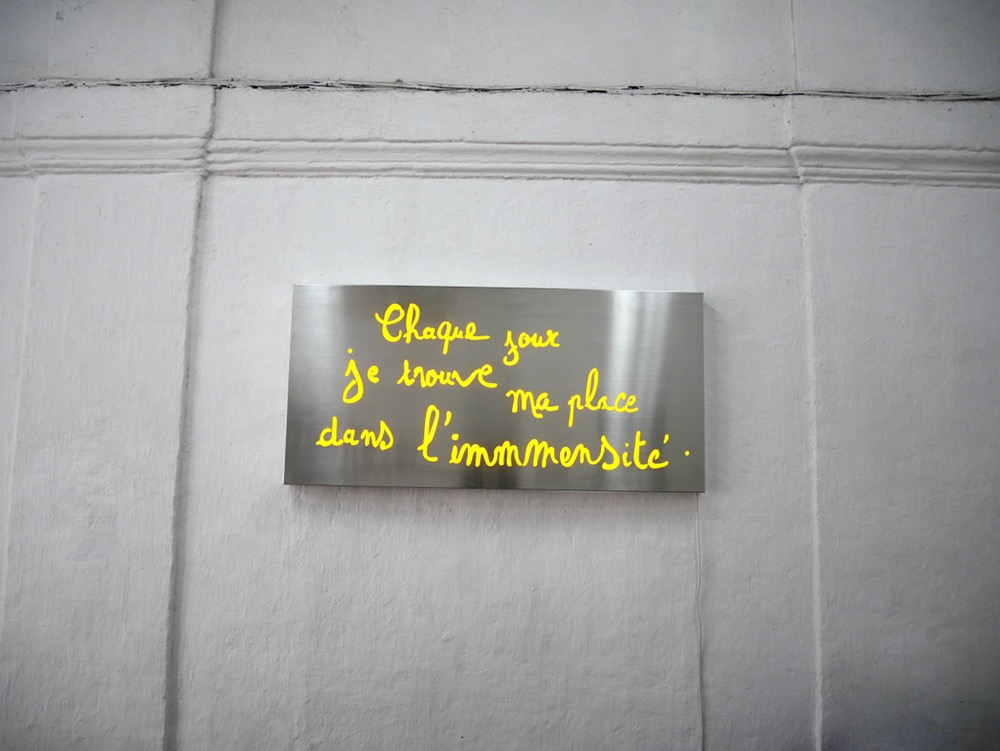 Chaque jour
je trouve ma place
dans l'immmensité.